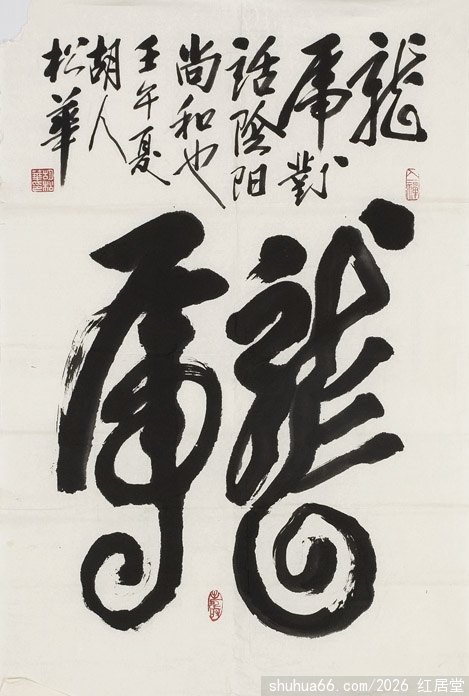 龍
虎對
話陰陽
尚和也
壬午夏
胡人
松華
龍
虎
shuhua66.com/2026 红居堂